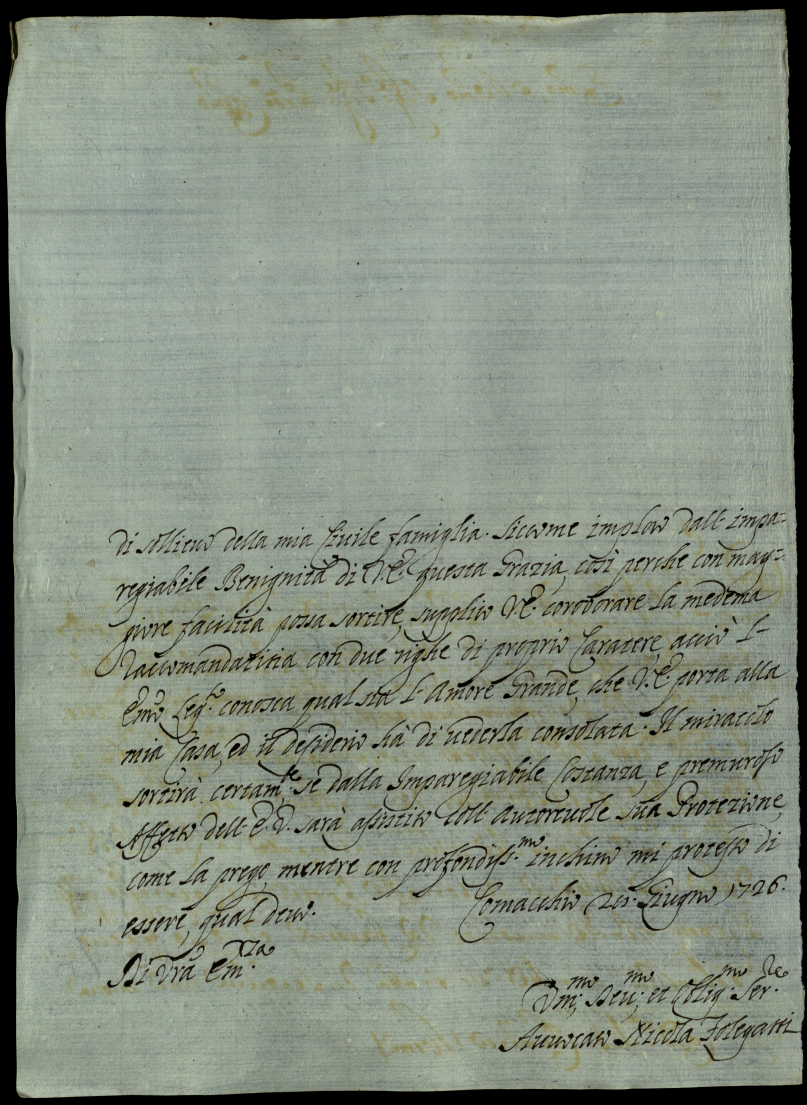 di sollievo della mia Civile famiglia. Siccome imploro dall' impa=
regiabile Benignità di V.E. questa Grazia, così perche con mag=
giore facilità possa sortire, supplico V.E. coroborare la medema
Raccomandatitia con due righe di proprio Caratere, acciò l'
Emo Leg.to conosca qual sia l' Amore Grande, che V.E. porta alla
mia Casa, ed il desiderio hà di vederla consolata. Il miracolo
sortirà certam.te se dalla Imparegiabile Costanza, e premuroso
Affetto dell' E.V. sarà assistito coll' Autorevole sua Protezione,
come la prego, mentre con profondiss.mo inchino mi protesto di
essere, qual devo. Comacchio 21 Giugno 1726.
Di Vrã Em.za
Vm.mo Dev.mo et Oblig.mo Ser.re
Avvocato Nicola Folegatti